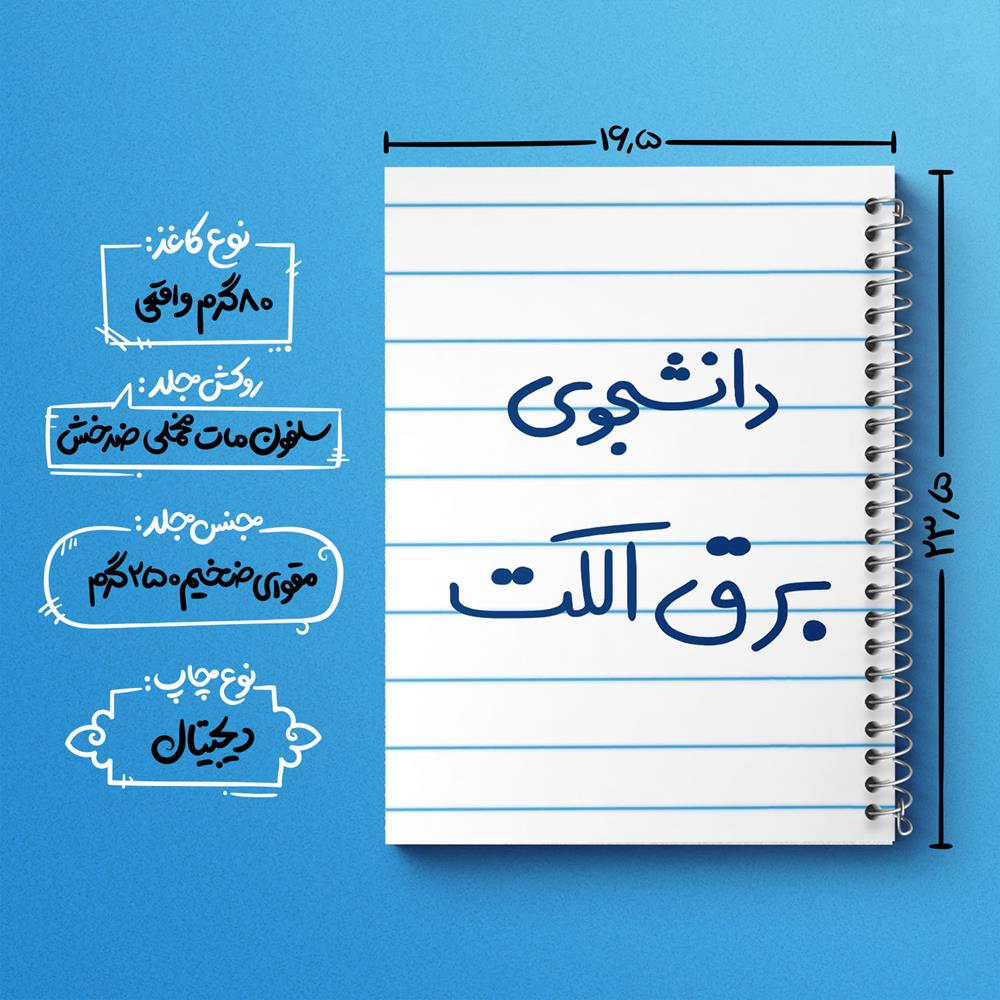 ۱۶٫۵
۲۳٫۵
دانشجوی
برق الکت
نوع کاغذ:
۸۰گرم واقعی
روکش جلد:
سلفون مات مخملی ضدخش
جنس جلد:
مقوای ضخیم ۲۵۰ گرم
نوع چاپ:
دیجیتال